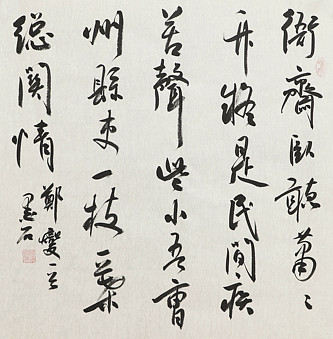 衙齋臥聽蕭〻
竹疑是民間疾
苦聲些小吾曹
州縣吏一枝一葉
總關情
鄭燮
墨石